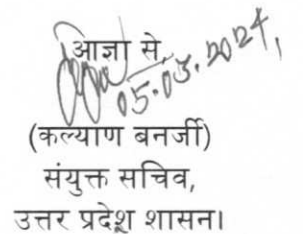 आज्ञा से,
05.03.2024,
(कल्याण बनर्जी)
संयुक्त सचिव,
उत्तर प्रदेश शासन।